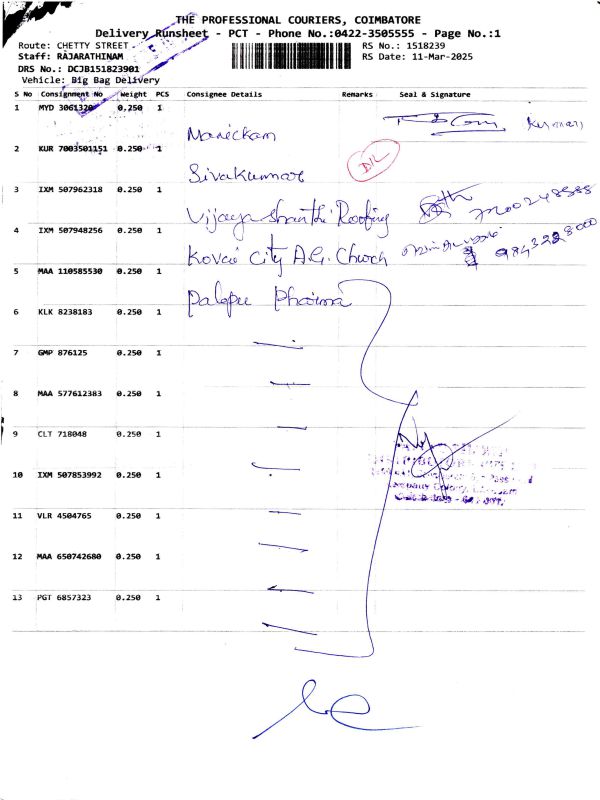 THE PROFESSIONAL COURIERS, COIMBATORE
Delivery Runsheet - PCT - Phone No.:0422-3505555 - Page No.:1
Route: CHETTY STREET RS No.: 1518239
Staff: RAJARATHINAM RS Date: 11-Mar-2025
DRS No.: DCJB151823901
Vehicle: Big Bag Delivery
S No Consignment No Weight PCS Consignee Details Remarks Seal & Signature
1 MYD 3061320 0.250 1
Manickam
2 KUR 7003501151 0.250 1
Sivakumar D/L
3 IXM 507962318 0.250 1
Vijaya Shanthi Roofing
4 IXM 507948256 0.250 1
Kovai City A.G. Church
5 MAA 110585530 0.250 1
Pharma
6 KLK 8238183 0.250 1
7 GMP 876125 0.250 1
8 MAA 577612383 0.250 1
9 CLT 718048 0.250 1
10 IXM 507853992 0.250 1
11 VLR 4504765 0.250 1
12 MAA 650742680 0.250 1
13 PGT 6857323 0.250 1